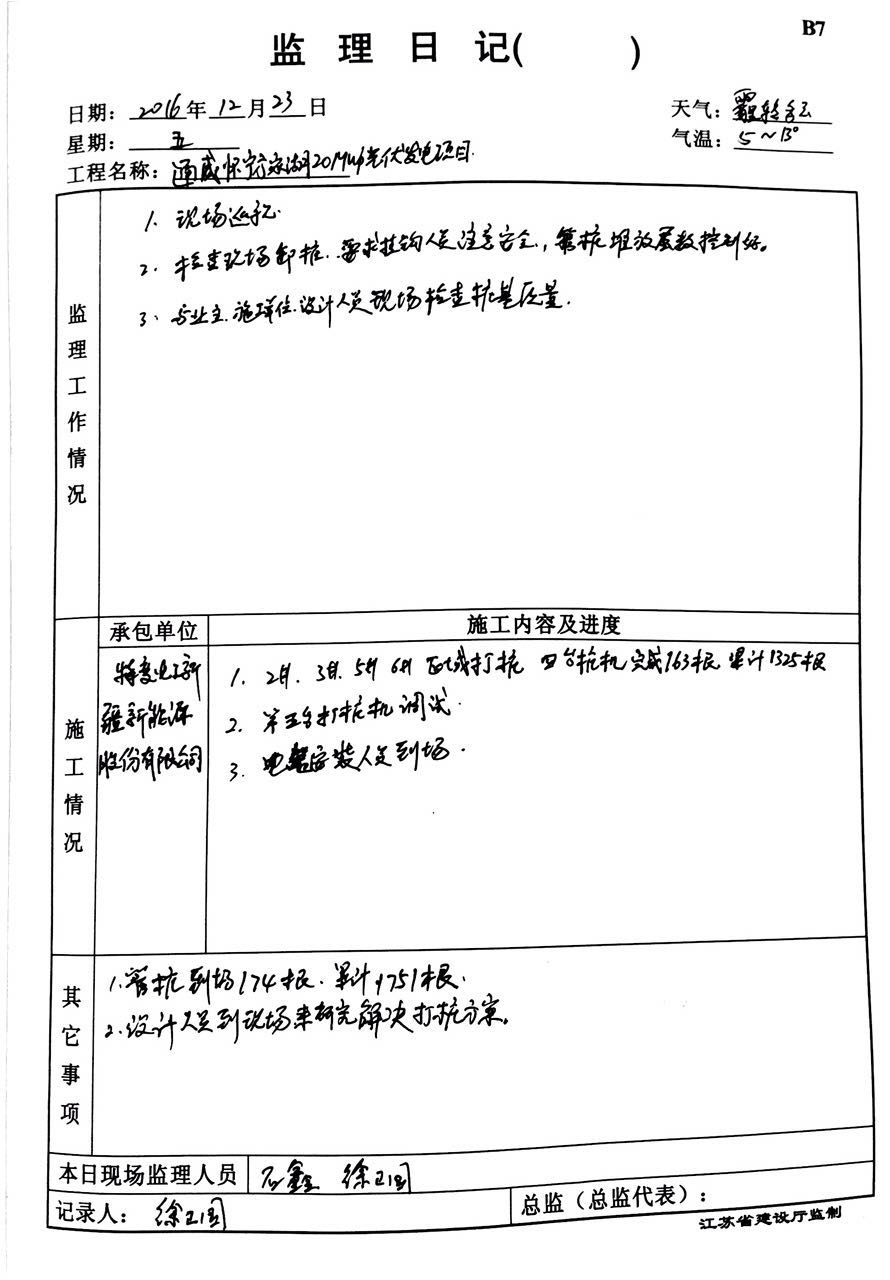 B7
监 理 日 记( )
日期: 2016年12月23日
天气: 转多云
星期: 五
气温: 5~13°
工程名称: 通威怀宁 湖20MWP光伏发电项目.
监理工作情况
1. 现场巡视.
2. 检查现场卸桩. 要求挂钩人员注意安全, 管桩堆放层数控制好。
3. 与业主.施工单位.设计人员现场检查桩基位置.
施工情况
承包单位
施工内容及进度
特变电工新疆新能源股份有限公司
1. 2#. 3#. 5# 6# 区域打桩 四台桩机完成163根 累计1325根
2. 第五台打桩机调试.
3. 电器安装人员到场.
其它事项
1. 管桩到场174根. 累计1751根.
2. 设计人员到现场来研究解决打桩方案。
本日现场监理人员 石鑫 徐卫国
记录人: 徐卫国
总监(总监代表):
江苏省建设厅监制